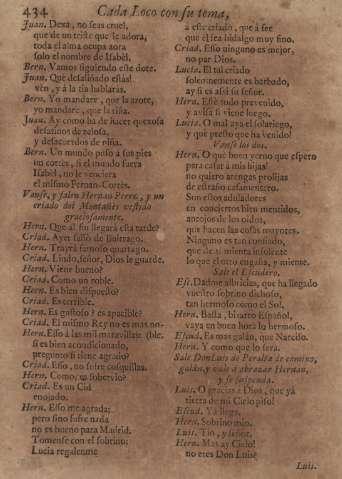 434 Cada Loco con su tema,
Juan. Dexa, no seas cruel,
que de un triste que le adora,
toda el alma ocupa aora
solo el nombre de Isabèl.
Bern. Vamos siguiendo este dote.
Juan. Què desatinado estàs!
vèn, y à la tia hablaràs.
Bern. Yo mandare, que la azote,
yo mandare, que la riña.
Juan. Ay como ha de hacer quexosa
desatinos de zelosa,
y desacuerdos de niña.
Bern. Un mundo puso à sus pies
un cortès, si el mundo fuera
Isabèl, no le venciera
el mismo Fernan-Cortès.
Vanse, y salen Hernan Perez, y un
criado del Montañès vestido
graciosamente.
Hern. Que al fin llegarà esta tarde?
Criad. Ayer saliò de Buitrago.
Hern. Trayrà famoso quartago.
Criad. Lindo, señor, Dios le guarde.
Hern. Viene bueno?
Criad. Como un roble.
Hern. Es bien dispuesto?
Criad. Es terrible.
Hern. Es gustoso? es apacible?
Criad. El mismo Rey no es mas no-
Hern. Esso à las mil maravillas: (ble.
si es bien acondicionado,
pregunto si tiene agrado?
Criad. Esso, no sufre cosquillas.
Hern. Como, es sobervio?
Criad. Es un Cid
enojado.
Hern. Esso me agrada;
pero sino sufre nada
no es bueno para Madrid.
Tomense con el sobrino:
Lucia regalenme
à este criado, que à fee
que el sea hidalgo muy fino.
Criad. Esso ninguno es mejor,
no par Dios.
Lucia. El tal criado
solemnemente es barbado,
ay si es assi su señor.
Hern. Estè todo prevenido,
y avisa si viene luego.
Lucia. O mal aya el solariego,
y què presto que ha venido!
Vanse los dos.
Hern. O què buen yerno que espero
para casar à mis hijas!
no quiero arengas prolijas
de estraño casamentero.
Son essos aduladores
en conciertos bien mentidos,
antojos de los oìdos,
que hacen las cosas mayores.
Ninguno es tan confiado,
que de sì mienta insolente
lo que el otro engaña, y miente.
Sale el Escudero.
Esc. Dadme albricias, que ha llegado
vuestro sobrino dichoso,
tan hermoso como el Sol,
Hern. Basta, bizarro Español,
vaya en buen hora lo hermoso.
Escud. Es mas galàn, que Narciso.
Hern. Y como que lo serà.
Sale Don Luis de Peralta de camino,
galàn, y vale à abrazar Hernan,
y se suspende.
Luis. O gracias à Dios, que yà
tierra de mi Cielo piso!
Escud. Yà llega.
Hern. Sobrino mio.
Luis. Tio, y señor.
Hern. Mas ay Cielo!
no eres Don Luis?
Luis.